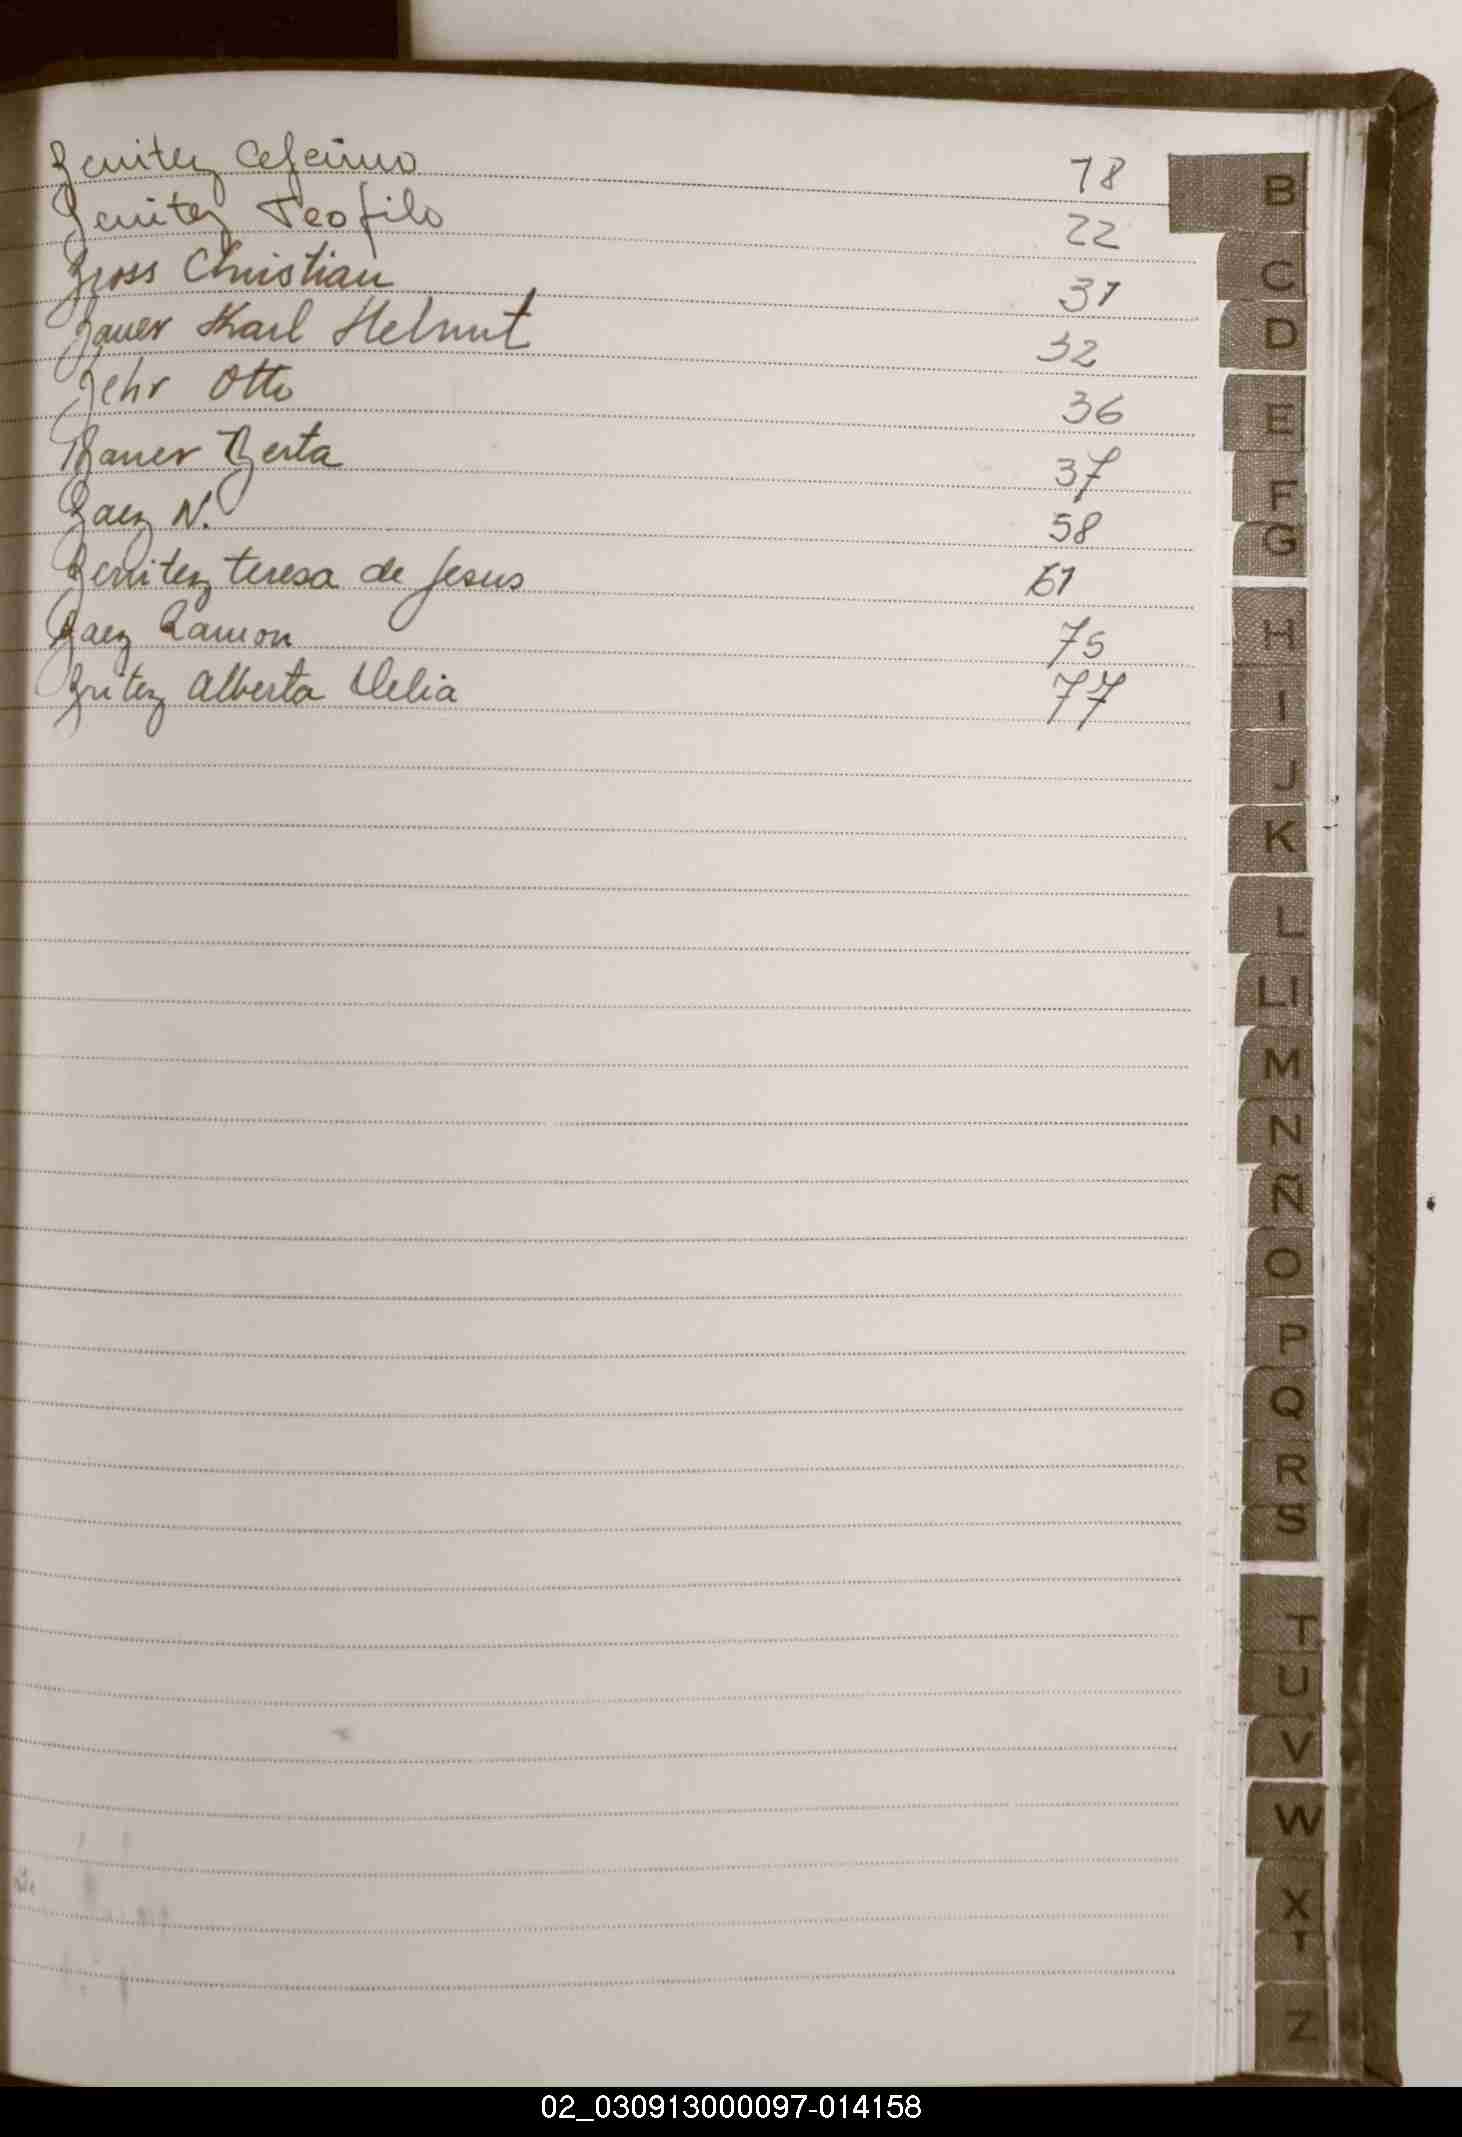 Benitez Ceferino 18
Benitez Teofilo 22
Bross Christian 31
Bauer Karl Helmut 32
Behr Otto 36
Bauer Berta 37
Baez N. 58
Benitez teresa de Jesus 61
Baez Ramon 75
Britez Alberta Delia 77
B
C
D
E
F
G
H
I
J
K
L
Ll
M
N
Ñ
O
P
Q
R
S
T
U
V
W
X
Z
02_030913000097-014158